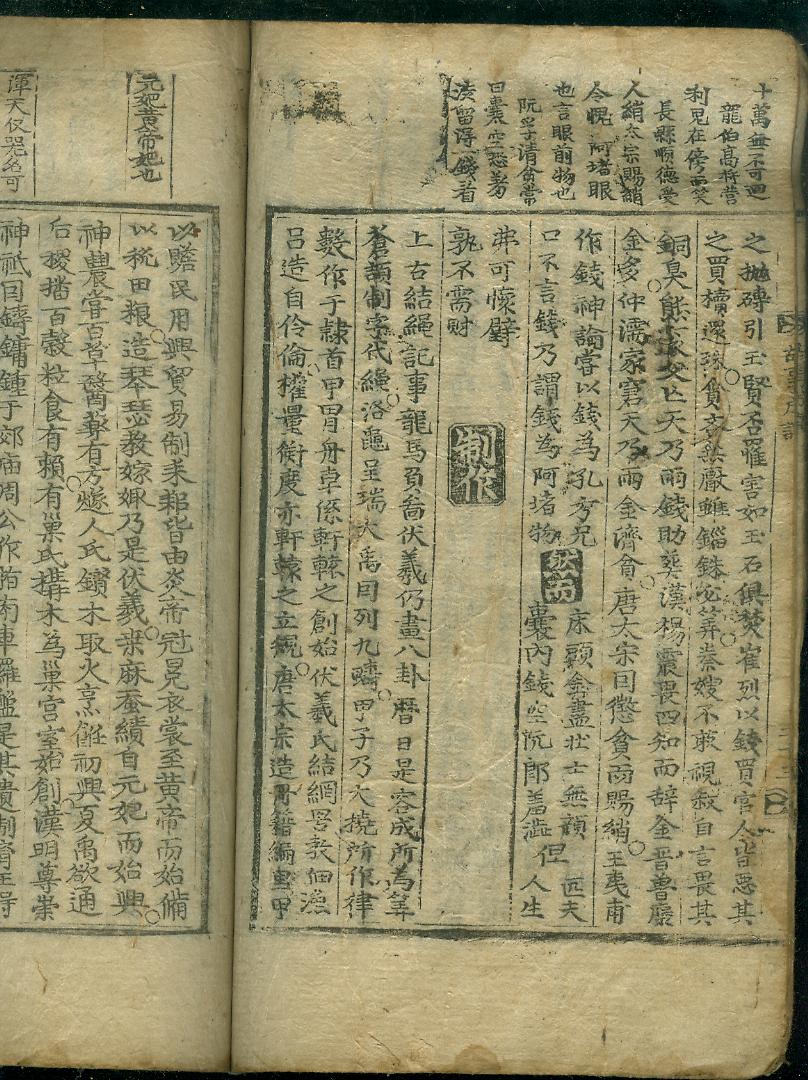 十萬無不可迴
龍伯高將營
利兒在傍而笑
長縣順德受
人絹太宗賜絹
令愧 阿堵眼
也言眼前物也
阮孚清貧常
曰囊空恐羞
澁留得一錢看
之抛磚引玉賢否罹害如玉石俱焚崔烈以錢買官人皆惡其
之買櫝還珠貪吝無厭雖錙銖必筭秦嫂不敢視叔自言畏其
銅臭熊衮父亡天乃雨錢助葬漢楊震畏四知而辞金晋魯褒
金多仲濡家窘天乃雨金濟貧唐太宗因懲貪而賜絹王夷甫
作錢神論嘗以錢為孔方兄 床頭金盡壯士無顔 匹夫
然而
口不言錢乃謂錢為阿堵物 囊內錢空阮郎羞澁 但 人生
弗可懷璧
孰不需財
制作
上古結繩記事龍馬負啚伏羲仍畫八卦曆日是容成所為筭
蒼頡制字代繩洛龜呈瑞大禹因列九疇甲子乃大撓所作律
數作于隷首甲冑舟車係軒轅之創始伏羲氏結網罟教佃漁
呂造自伶倫權量衡度亦軒轅之立規唐太宗造冊籍編里甲
元妃黄帝妃也
渾天仪器名可
以贍民用興貿易制耒耜皆由炎帝冠冕衣裳至黃帝而始備
以稅田粮造琴瑟教嫁娵乃是伏羲桒麻蚕績自元妃而始興
神農嘗百草醫藥有方燧人氏鑽木取火烹飪初興夏禹欲通
后稷播百穀粒食有賴有巢氏構木為巢宮室始創漢明尊崇
神祇因鑄鏞鍾于郊廟周公作指南車羅盤是其遺制齊王